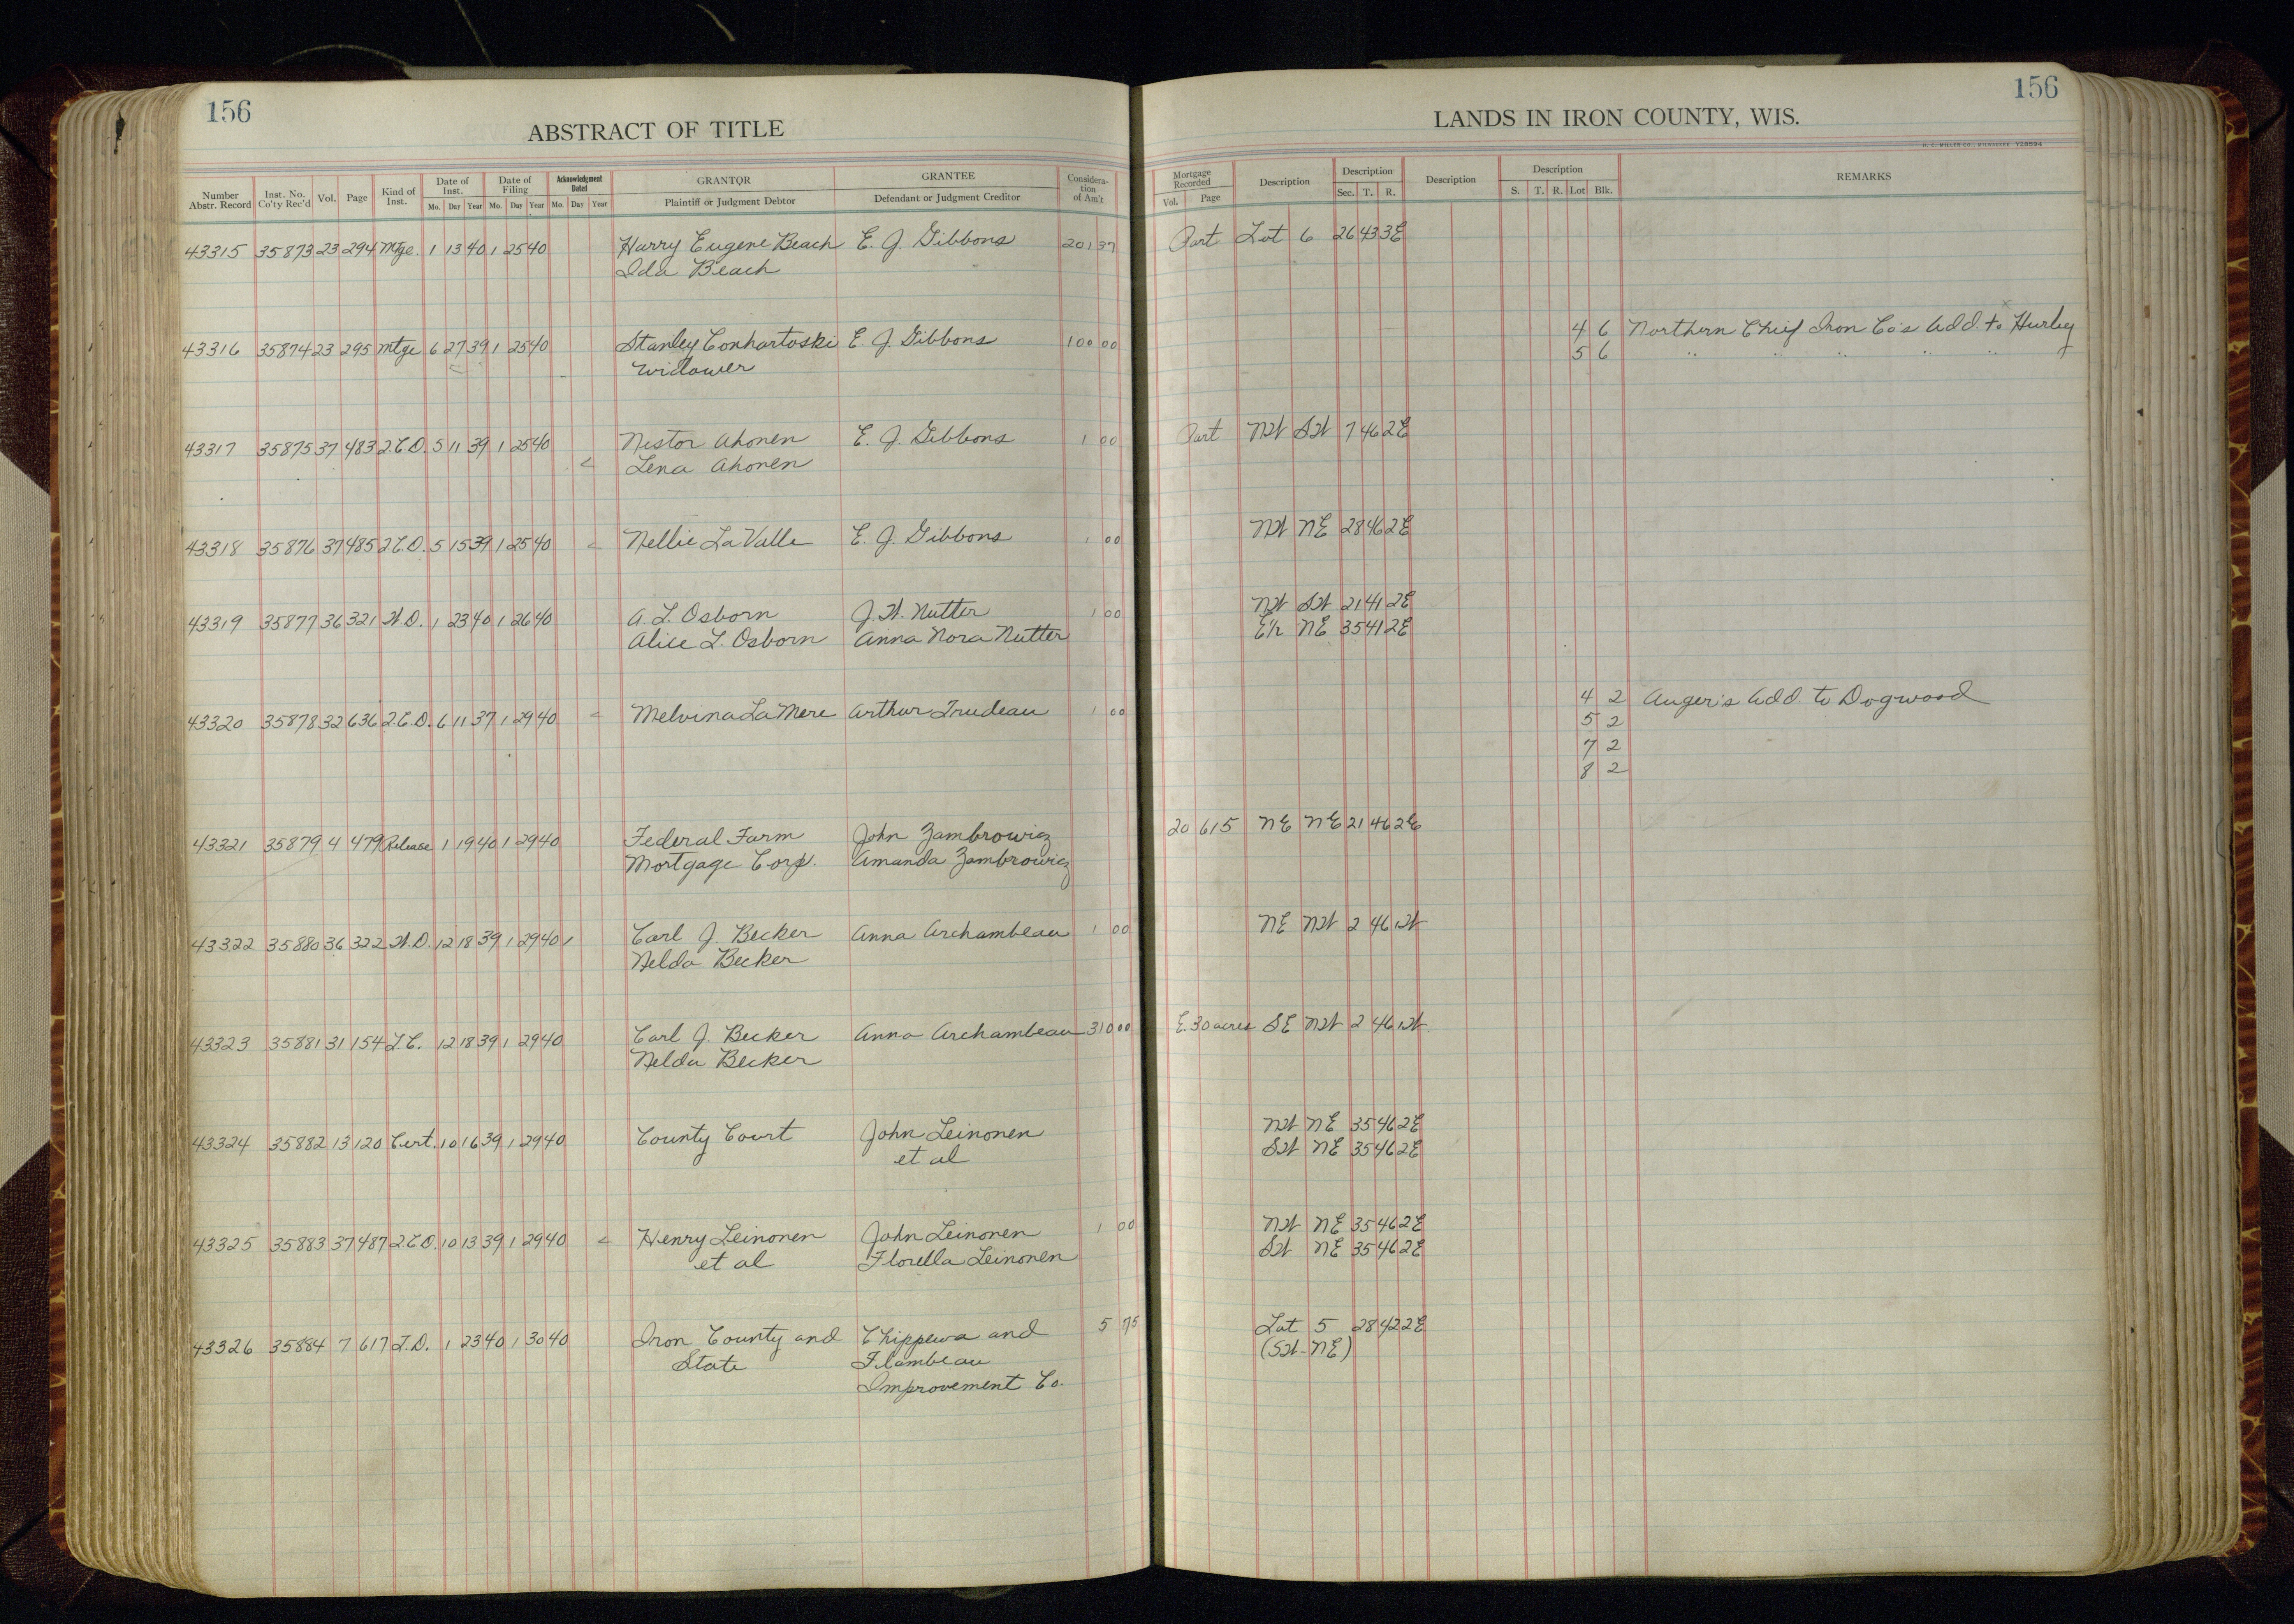 156
ABSTRACT OF TITLE
Number Abstr. Record Inst. No. Co'ty Rec'd Vol. Page Kind of Inst. Date of Inst. Mo. Day Year Date of Filing Mo. Day Year Acknowledgment Dated Mo. Day Year GRANTOR Plaintiff or Judgment Debtor GRANTEE Defendant or Judgment Creditor Consideration of Am't
43315 35873 23 294 Mtge. 1 13 40 1 25 40 Harry Eugene Beach E. J. Gibbons 201 37
Ida Beach
43316 35874 23 295 Mtge 6 27 39 1 25 40 Stanley Conhartoski E. J. Gibbons 100 00
widower
43317 35875 37 483 2.C.D. 5 11 39 1 25 40 Nestor Ahonen E. J. Gibbons 1 00
Lena Ahonen
43318 35876 37 485 2.C.D. 5 15 39 1 25 40 Nellie La Valle E. J. Gibbons 1 00
43319 35877 36 321 W.D. 1 23 40 1 26 40 A. L. Osborn J. W. Nutter 1 00
Alice L. Osborn Anna Nora Nutter
43320 35878 32 636 2.C.D. 6 11 37 1 29 40 Melvina La Mere Arthur Trudeau 1 00
43321 35879 4 479 Release 1 19 40 1 29 40 Federal Farm John Zambrowicz
Mortgage Corp. Amanda Zambrowicz
43322 35880 36 322 W.D. 12 18 39 1 29 40 Carl J. Becker Anna Archambeau 1 00
Nelda Becker
43323 35881 31 154 L.C. 12 18 39 1 29 40 Carl J. Becker Anna Archambeau 310 00
Nelda Becker
43324 35882 13 120 Cert. 10 16 39 1 29 40 County Court John Leinonen
et al
43325 35883 37 487 2.C.D. 10 13 39 1 29 40 Henry Leinonen John Leinonen 1 00
et al Florella Leinonen
43326 35884 7 617 T.D. 1 23 40 1 30 40 Iron County and Chippewa and 5 75
State Flambeau
Improvement Co.
156
LANDS IN IRON COUNTY, WIS.
H. C. MILLER CO., MILWAUKEE Y28094
Mortgage Recorded Vol. Page Description Description Sec. T. R. Description Description S. T. R. Lot Blk. REMARKS
Part Lot 6 26 43 3E
4 6 Northern Chief Iron Co's Add. to Hurley
5 6 " " " " " "
Part NW SW 7 46 2E
NW NE 28 46 2E
NW SW 21 41 2E
E½ NE 35 41 2E
4 2 Auger's Add. to Dogwood
5 2
7 2
8 2
20 615 NE NE 21 46 2E
NE NW 2 46 1W
E. 30 acres SE NW 2 46 1W
NW NE 35 46 2E
SW NE 35 46 2E
NW NE 35 46 2E
SW NE 35 46 2E
Lot 5 28 42 2E
(SW-NE)